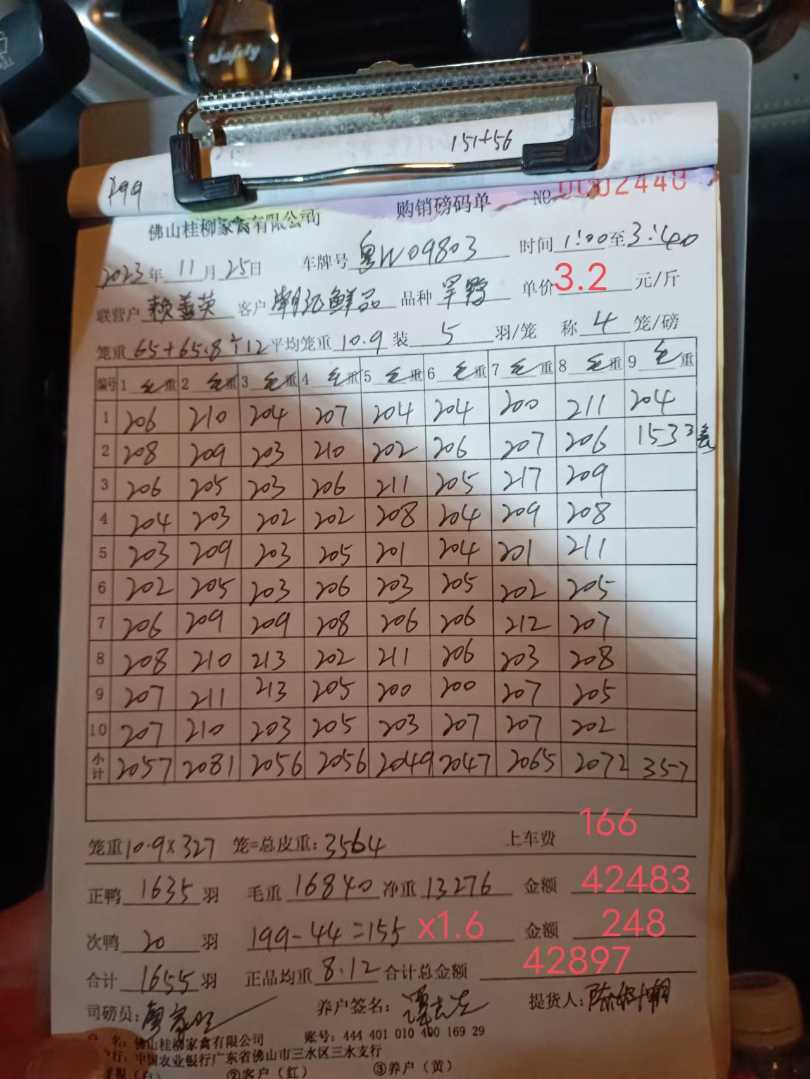 151+56
199
佛山桂柳家禽有限公司 购销磅码单 NO.0002440
2023年11月25日 车牌号粤W09803 时间1:00至3:40
联营户 赖盖英 客户 潮记鲜品 品种 单价3.2元/斤
笼重65+65.8÷12平均笼重10.9装5羽/笼 称4笼/磅
编号 1毛重 2毛重 3毛重 4毛重 5毛重 6毛重 7毛重 8毛重 9毛重
1 206 210 204 207 204 204 200 211 204
2 208 209 203 210 202 206 207 206 153 3笼
3 206 205 203 206 211 205 217 209
4 204 203 202 202 208 204 209 208
5 203 209 203 205 201 204 201 211
6 202 205 203 206 203 205 202 205
7 206 209 209 208 206 206 212 207
8 208 210 213 202 211 206 203 208
9 207 211 213 205 200 200 207 205
10 207 210 203 205 203 207 207 202
小计 2057 2081 2056 2056 2049 2047 2065 2072 357
笼重10.9×327笼=总皮重:3564 上车费 166
正鸭1635羽 毛重16840净重13276 金额42483
次鸭20羽 199-44=155 x1.6 金额248
合计1655羽 正品均重8.12合计总金额42897
司磅员: 养户签名: 提货人:
名:佛山桂柳家禽有限公司 账号:444 401 010 400 169 29
行:中国农业银行广东省佛山市三水区三水支行
(白) ②客户(红) ③养户(黄)